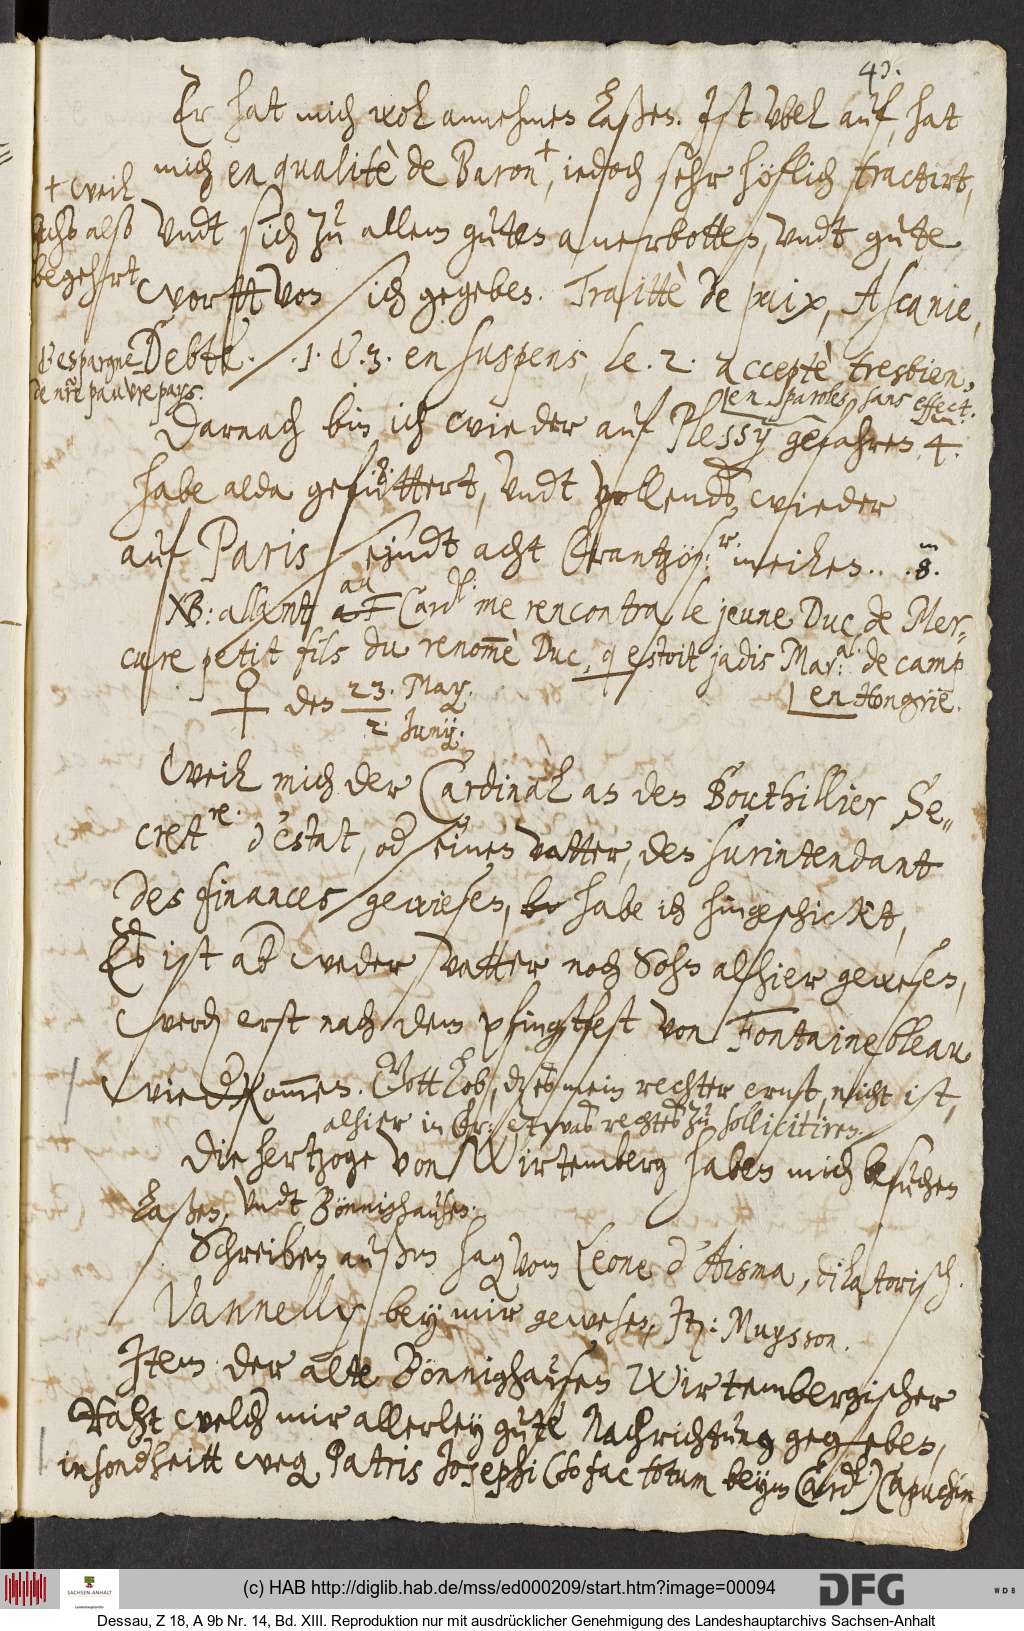 43.
Er hat mich wol annehmen laßen. Ist vbel auf, hat
mich en qualitè de Baron +, iedoch sehr höflich tractirt,
+ weil
ichs also
begehrt
vndt sich zu allem guten anerbotten, vndt gute
wortt von sich gegeben. Traittè de paix, Ascanie,
Debte. .1. & .3. en suspens, le .2. accepté tresbien,
& espargnè
de nr̃e pauvre pays.
en paroles, sans effect.
Darnach bin ich wieder auf Plessy gefahren 4.
habe alda gefüttert, vndt vollends wieder
8.
auf Paris seindt acht Frantzös:r meilen.. .8. m
NB: allant au Cardl: me rencontra le jeune Duc, de Mer-
cure petit fils du renom̃è Duc, q estoit jadis Mar:al de camp
en Hongrie.
♀ den 23. May.
2. Junij.
Weil mich der Cardinal an den Bouthillier Se-
cret.re d'estat, od seinen vatter, den surintendant
des finances gewiesen, habe ich hingeschickt,
Es ist ab weder vatter noch Sohn alhier gewesen,
werdn erst nach dem pfingstfest von Fontainebleau
wiedkom̃en. Gott lob, dz es mein rechter ernst nicht ist,
alhier in Fr: etwas rechtes zu sollicitiren.
Die hertzoge von Wirtemberg haben mich besuchen
laßen, vndt Bönnighausen.
Schreiben außm Hag vom Leone d'Aisma, dilatorisch.
Vannelly bey mir gewesen, It: Muysson.
Item: der alte Bönnighausen Wirtembergischer
Raht welch mir allerley gute Nachrichtung gegeben,
insondheitt weg Patris Josephi (so fac totum beym Cardl) Capuchin
(c) HAB http://diglib.hab.de/mss/ed000209/start.htm?image=00094
SACHSEN-ANHALT
DFG
WDB
Dessau, Z 18, A 9b Nr. 14, Bd. XIII. Reproduktion nur mit ausdrücklicher Genehmigung des Landeshauptarchivs Sachsen-Anhalt